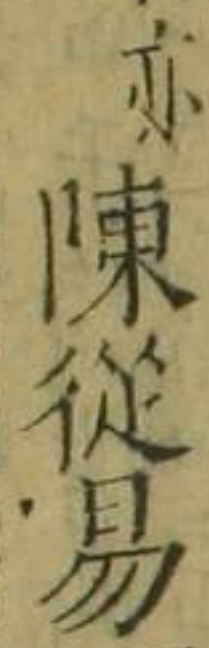 亦
陳從易